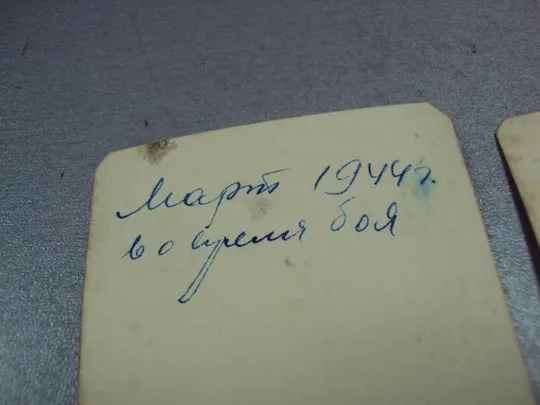 Март 1944 г.
во время боя